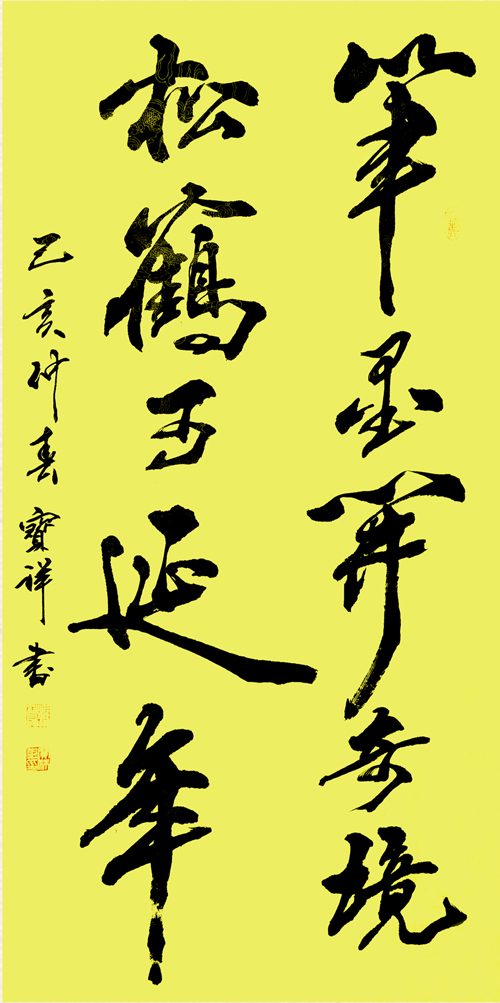 筆墨開奇境
松鶴可延年
己亥仲春寶祥書